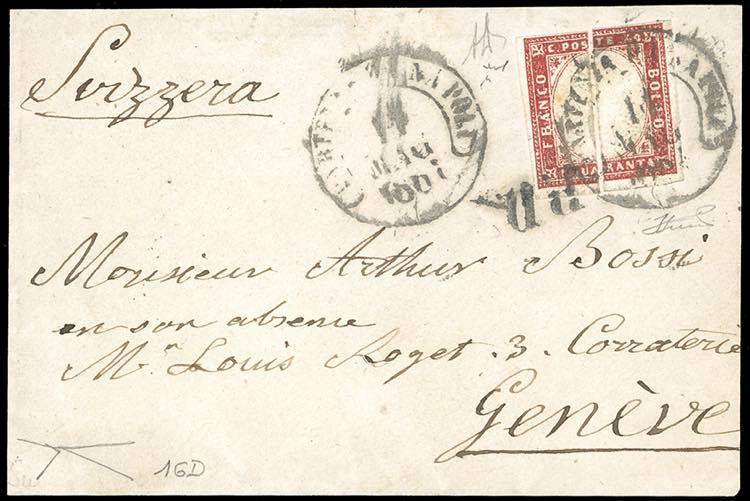 Svizzera
PARTENZA DA NAPOLI
MAG
1861
C. POSTE 40
FRANCO
BOLLO
QUARANTA
Monsieur Arthur Bossi
en son absence
Mr Louis Roget. 3. Corraterie
Genève
16D